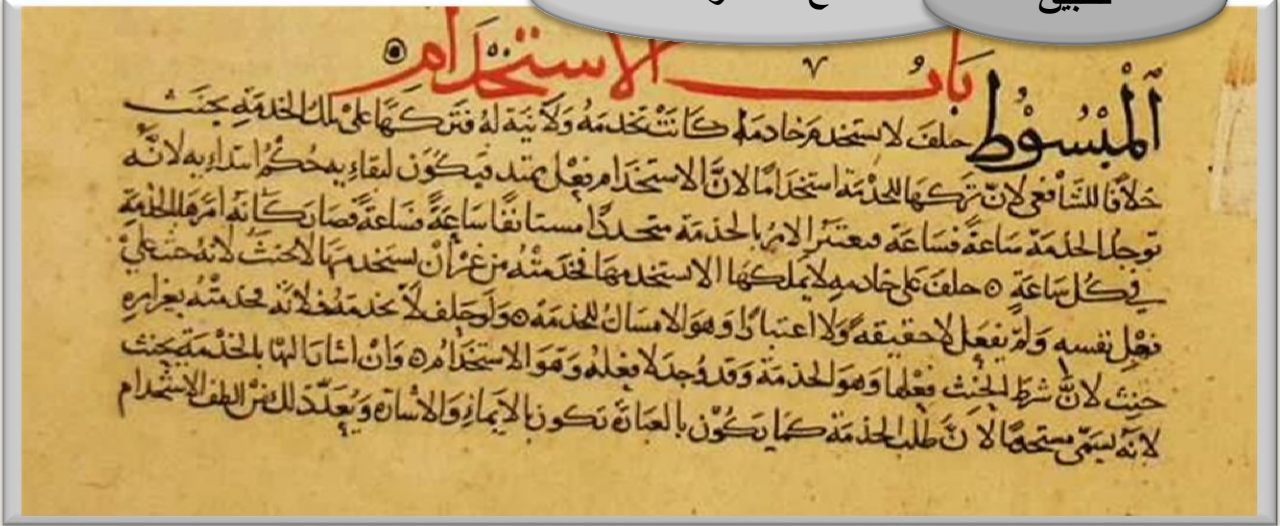 تطبيق
باب الاستخدام
المبسوط حلف لا يستخدم خادمه كانت تخدمه ولا نية له فتركها على تلك الخدمة يحنث
خلافا للشافعي لان تركها للخدمة استخدامًا لانَّ الاستخدام فعل يمتد فيكون لبقايه حكم ابتدايه لانه
توجد الخدمة ساعةً فساعة فيعتبر الامر بالخدمة متجددًا مستانفًا ساعةً فساعةً فصار كانه امرها بالخدمة
في كل ساعةٍ ٥ حلف على خادمه لا يملكها لا يستخدمها فخدمته من غير أن يستخدمها لا يحنث لانه حلف على
فعل نفسه ولم يفعل لا حقيقه ولا اعتبارًا وهو الامساك للخدمة ٥ ولو حلف لا تخدمه فخدمته بغير امره
حنث لان شرط الحنث فعلها وهو الخدمة وقد وجد لا فعله وهو الاستخدام ٥ وان اشار اليها بالخدمة يحنث
لانه يسمى مستخدمًا لانَّ طلب الخدمة كما يكون بالعبارة تكون بالايماءِ والاشارة ويُعدّ ذلك من الطف الاستخدام